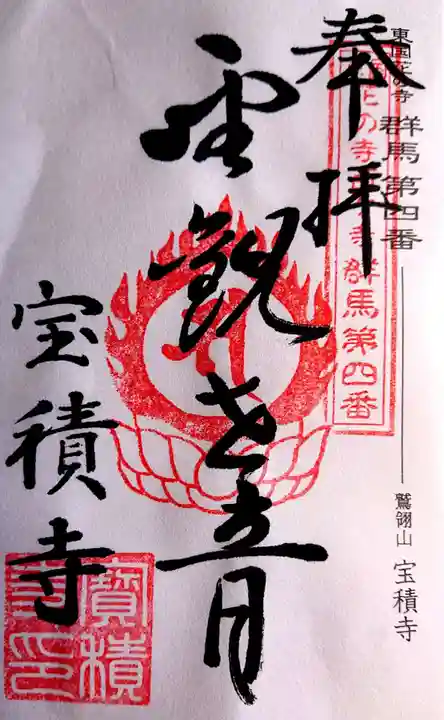 東国花の寺 群馬第四番 鷲翎山 宝積寺
花の寺 群馬第四番
奉拝
聖観世音
宝積寺
寳積寺印